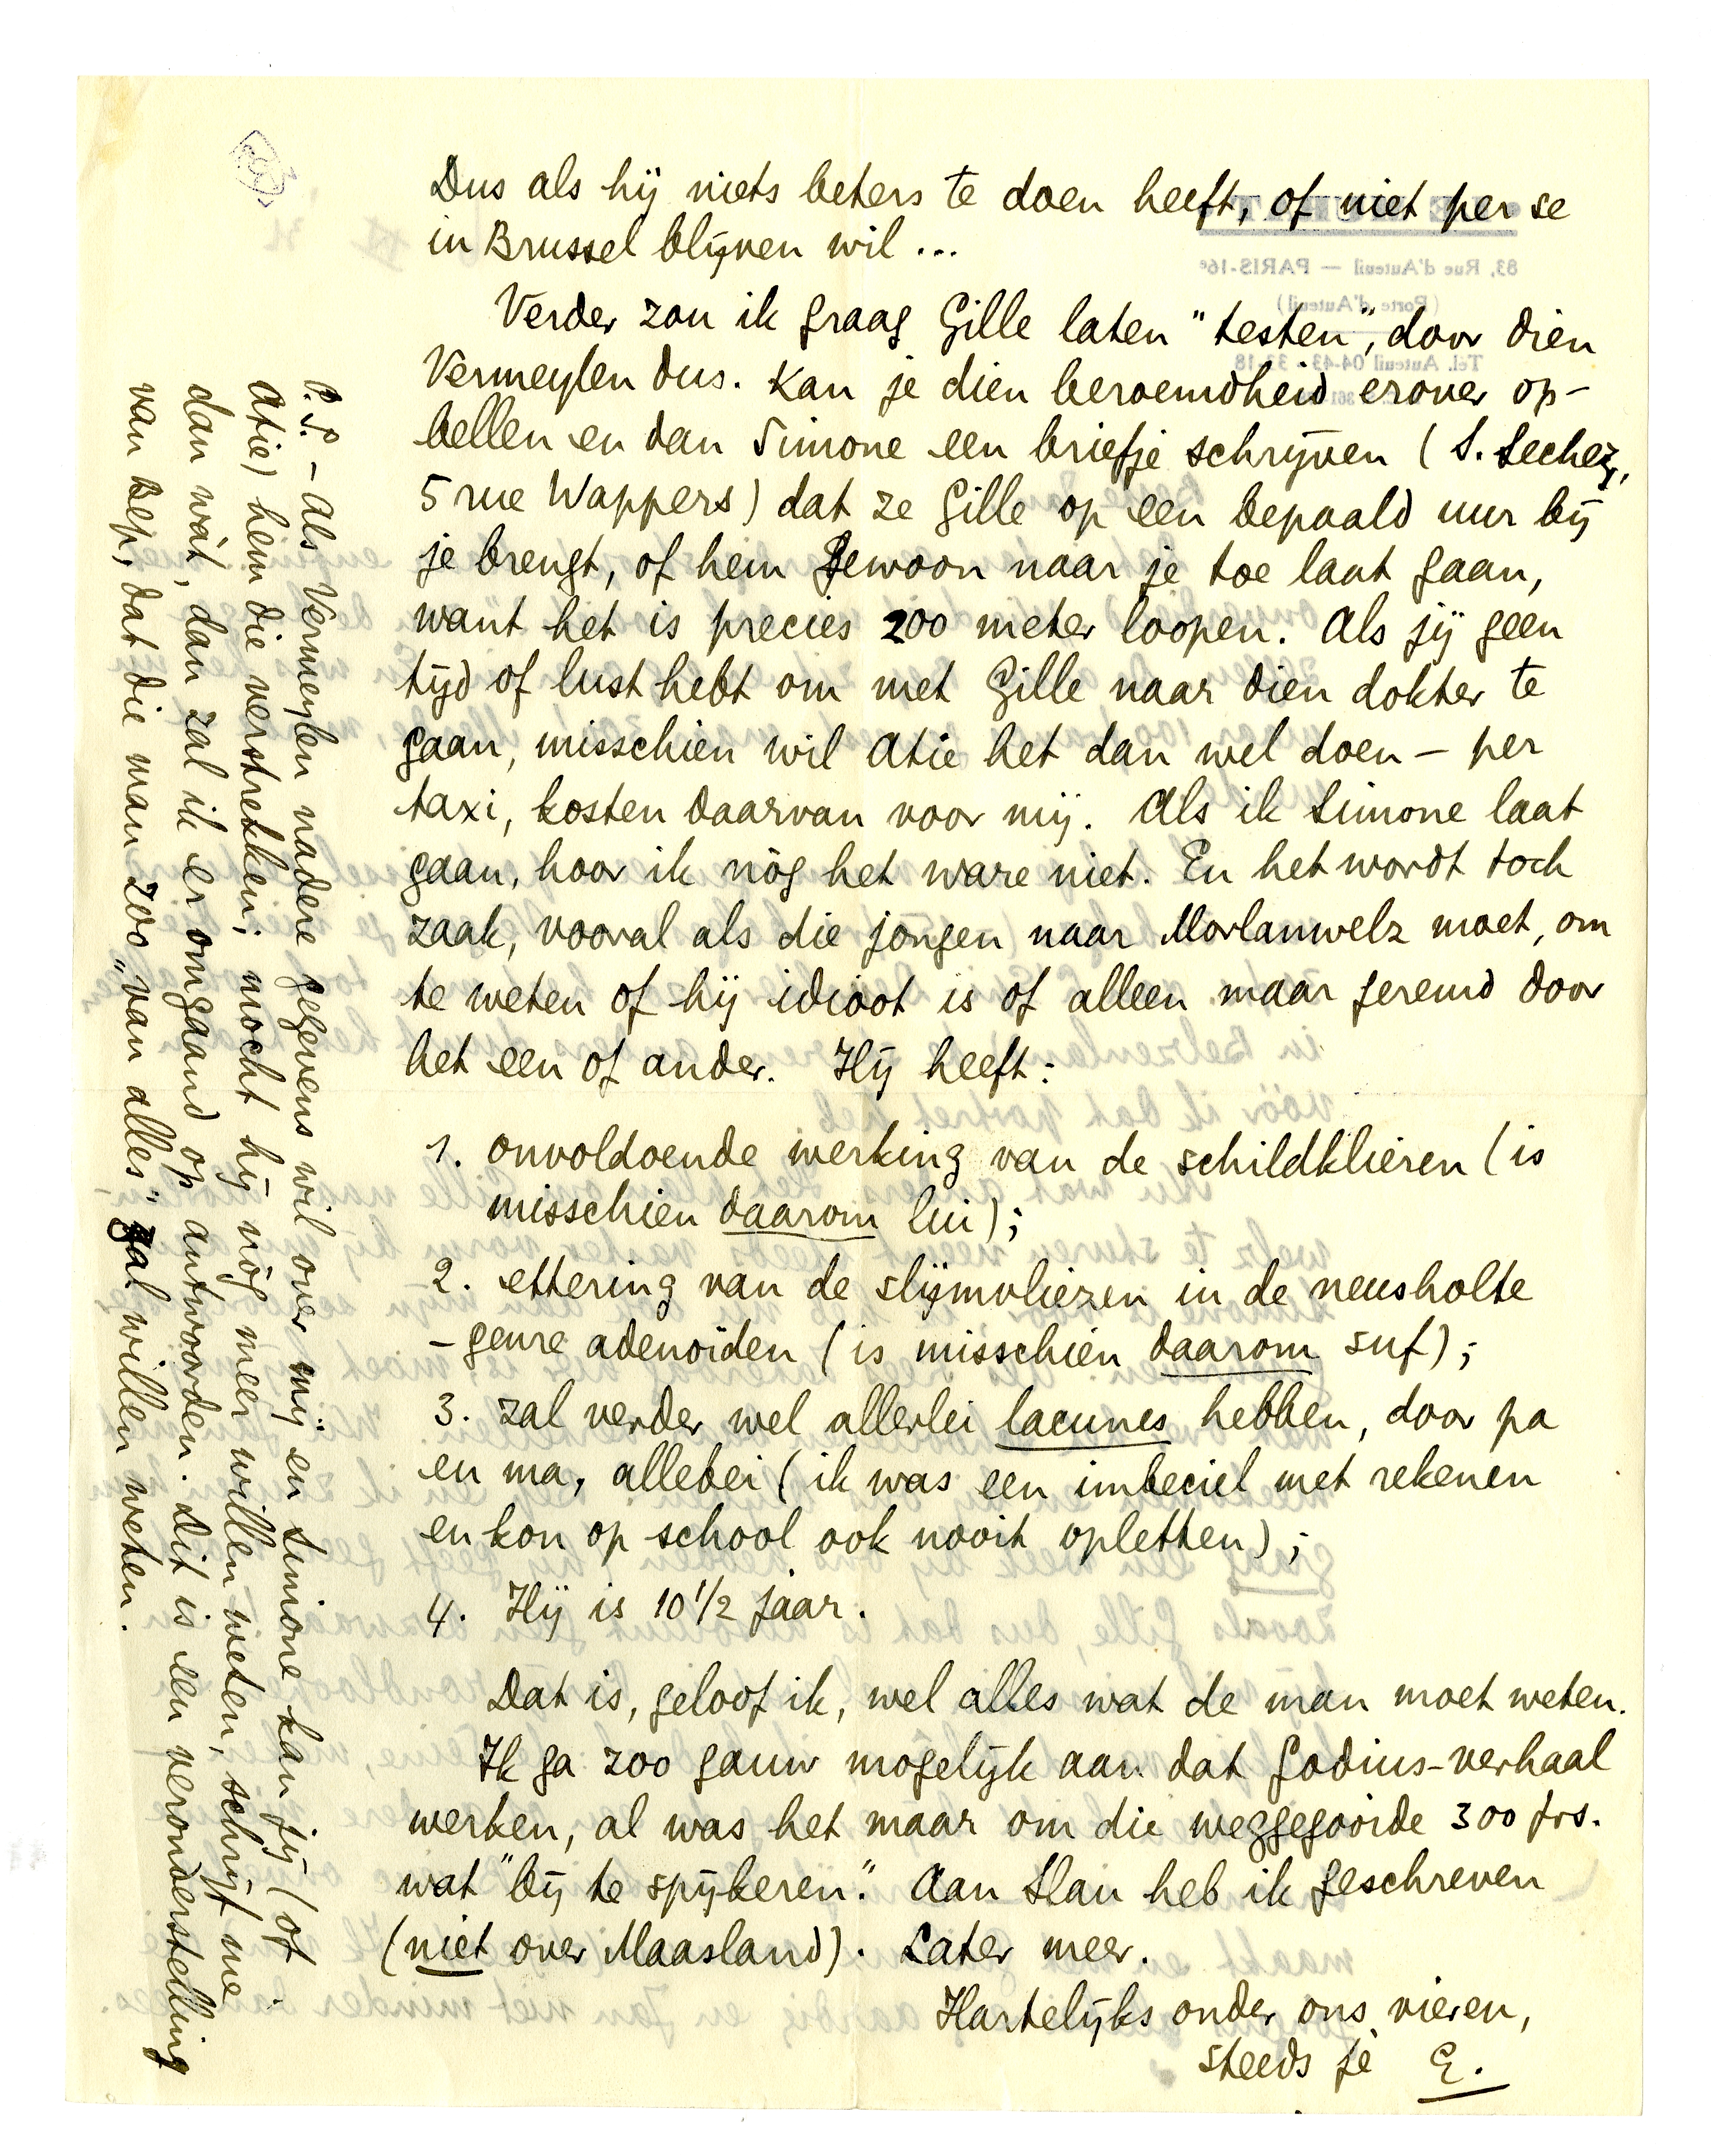 Dus als hij niets beters te doen heeft, of niet per se
in Brussel blijven wil ...
Verder zou ik graag Gille laten "testen", door dien
Vermeylen dus. Kan je dien beroemdheid erover op-
bellen en dan Simone een briefje schrijven (S. Sechez,
5 rue Wappers) dat ze Gille op een bepaald uur bij
je brengt, of hem gewoon naar je toe laat gaan,
want het is precies 200 meter loopen. Als jij geen
tijd of lust hebt om met Gille naar dien dokter te
gaan, misschien wil Atie het dan wel doen – per
taxi, kosten daarvan voor mij. Als ik Simone laat
gaan, hoor ik nòg het ware niet. En het wordt toch
zaak, vooral als die jongen naar Morlanwelz moet, om
te weten of hij idioot is of alleen maar geremd door
het een of ander. Hij heeft:
1. onvoldoende werking van de schildklieren (is
misschien daarom lui);
2. ettering van de slijmvliezen in de neusholte
– genre adenoïden (is misschien daarom suf);
3. zal verder wel allerlei lacunes hebben, door pa
en ma, allebei (ik was een imbeciel met rekenen
en kon op school ook nooit opletten);
4. Hij is 10 1/2 jaar.
Dat is, geloof ik, wel alles wat de man moet weten.
Ik ga zoo gauw mogelijk aan dat Godius-verhaal
werken, al was het maar om die weggegooide 300 frs.
wat "bij te spijkeren." Aan Slau heb ik geschreven
(niet over Maasland). Later meer.
Hartelijks onder ons vieren,
steeds je E.
P.S. – Als Vermeylen nadere gegevens wil over mij en Simone kan jij (of
Atie) hem die verstrekken; mocht hij nòg meer willen weten, schrijf me
dan wàt, dan zal ik er omgaand op antwoorden. Dit is een veronderstelling
van Bep, dat die man zoo „van alles" zal willen weten.
83, Rue d'Auteuil — PARIS-16e
(Porte d'Auteuil)